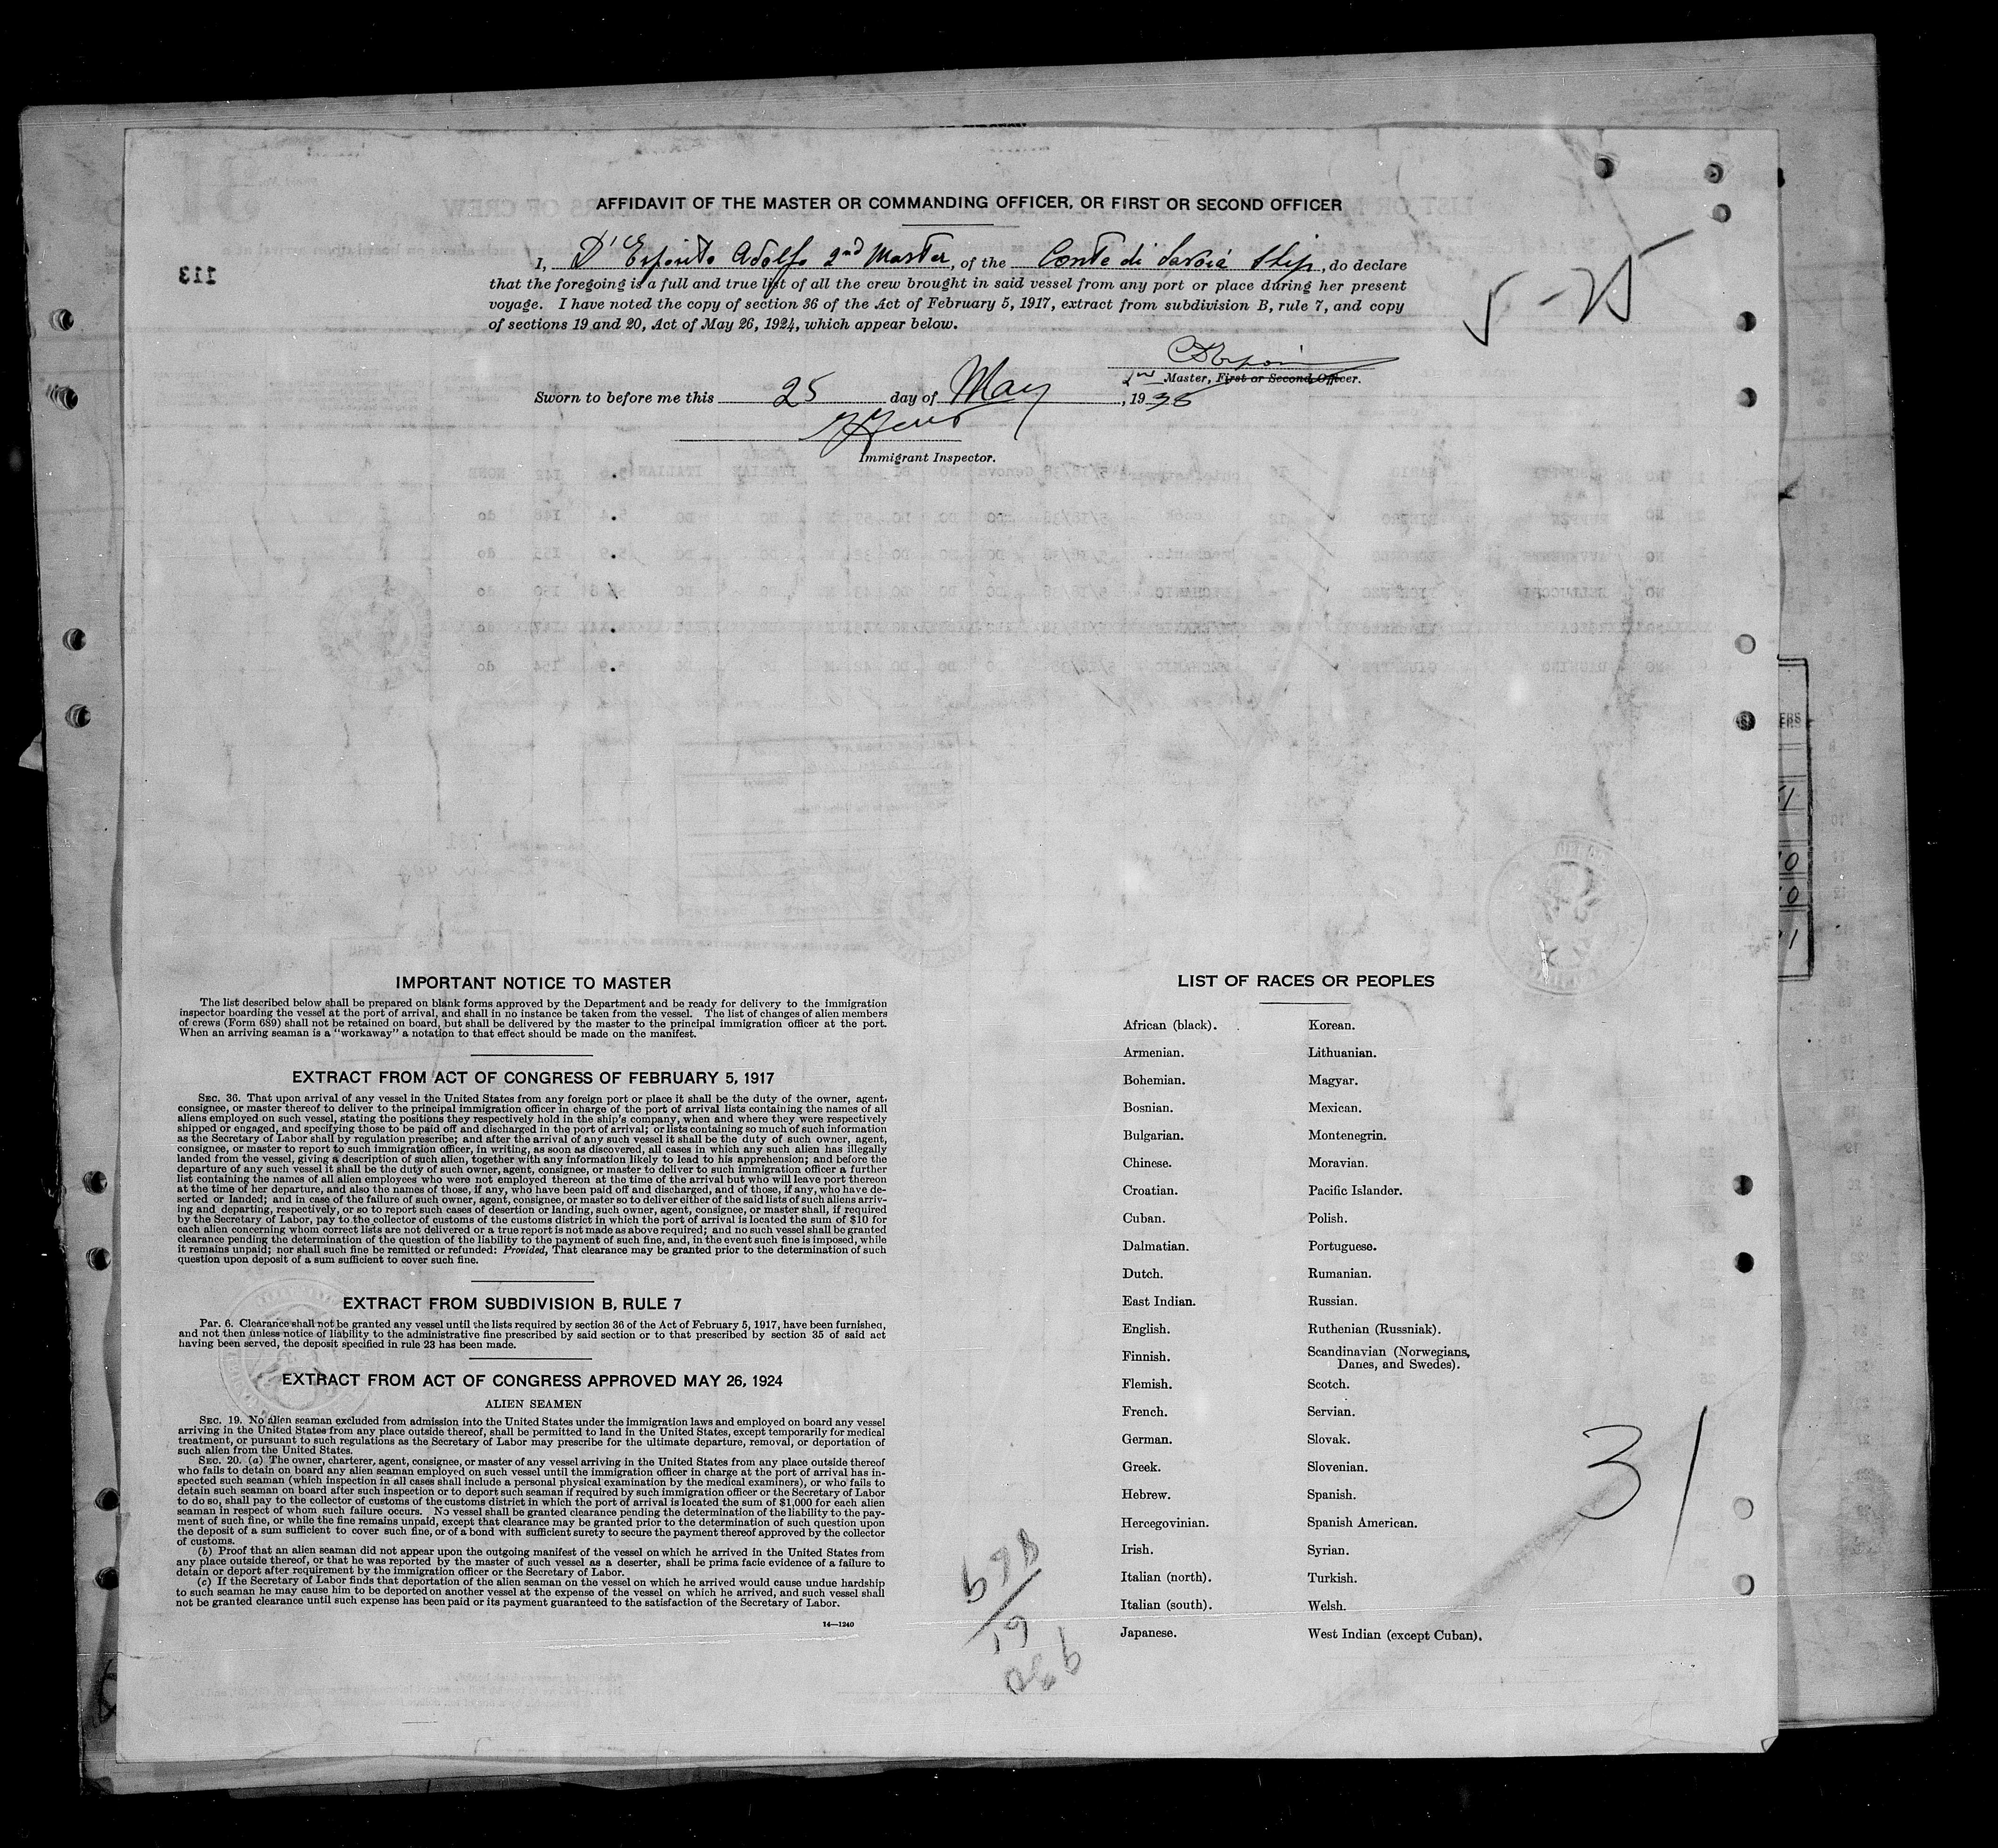 AFFIDAVIT OF THE MASTER OR COMMANDING OFFICER, OR FIRST OR SECOND OFFICER
I, D'Esposito Adolfo 2nd Master, of the Conte di Savoia Ship, do declare
that the foregoing is a full and true list of all the crew brought in said vessel from any port or place during her present
voyage. I have noted the copy of section 36 of the Act of February 5, 1917, extract from subdivision B, rule 7, and copy
of sections 19 and 20, Act of May 26, 1924, which appear below.
5-25
113
2nd Master, First or Second Officer.
Sworn to before me this 25 day of May, 1938
Immigrant Inspector.
IMPORTANT NOTICE TO MASTER
The list described below shall be prepared on blank forms approved by the Department and be ready for delivery to the immigration
inspector boarding the vessel at the port of arrival, and shall in no instance be taken from the vessel. The list of changes of alien members
of crews (Form 689) shall not be retained on board, but shall be delivered by the master to the principal immigration officer at the port.
When an arriving seaman is a "workaway" a notation to that effect should be made on the manifest.
EXTRACT FROM ACT OF CONGRESS OF FEBRUARY 5, 1917
SEC. 36. That upon arrival of any vessel in the United States from any foreign port or place it shall be the duty of the owner, agent,
consignee, or master thereof to deliver to the principal immigration officer in charge of the port of arrival lists containing the names of all
aliens employed on such vessel, stating the positions they respectively hold in the ship's company, when and where they were respectively
shipped or engaged, and specifying those to be paid off and discharged in the port of arrival; or lists containing so much of such information
as the Secretary of Labor shall by regulation prescribe; and after the arrival of any such vessel it shall be the duty of such owner, agent,
consignee, or master to report to such immigration officer, in writing, as soon as discovered, all cases in which any such alien has illegally
landed from the vessel, giving a description of such alien, together with any information likely to lead to his apprehension; and before the
departure of any such vessel it shall be the duty of such owner, agent, consignee, or master to deliver to such immigration officer a further
list containing the names of all alien employees who were not employed thereon at the time of the arrival but who will leave port thereon
at the time of her departure, and also the names of those, if any, who have been paid off and discharged, and of those, if any, who have de-
serted or landed; and in case of the failure of such owner, agent, consignee, or master so to deliver either of the said lists of such aliens arriv-
ing and departing, respectively, or so to report such cases of desertion or landing, such owner, agent, consignee, or master shall, if required
by the Secretary of Labor, pay to the collector of customs of the customs district in which the port of arrival is located the sum of $10 for
each alien concerning whom correct lists are not delivered or a true report is not made as above required; and no such vessel shall be granted
clearance pending the determination of the question of the liability to the payment of such fine, and, in the event such fine is imposed, while
it remains unpaid; nor shall such fine be remitted or refunded: Provided, That clearance may be granted prior to the determination of such
question upon deposit of a sum sufficient to cover such fine.
EXTRACT FROM SUBDIVISION B, RULE 7
PAR. 6. Clearance shall not be granted any vessel until the lists required by section 36 of the Act of February 5, 1917, have been furnished,
and not then unless notice of liability to the administrative fine prescribed by said section or to that prescribed by section 35 of said act
having been served, the deposit specified in rule 23 has been made.
EXTRACT FROM ACT OF CONGRESS APPROVED MAY 26, 1924
ALIEN SEAMEN
SEC. 19. No alien seaman excluded from admission into the United States under the immigration laws and employed on board any vessel
arriving in the United States from any place outside thereof, shall be permitted to land in the United States, except temporarily for medical
treatment, or pursuant to such regulations as the Secretary of Labor may prescribe for the ultimate departure, removal, or deportation of
such alien from the United States.
SEC. 20. (a) The owner, charterer, agent, consignee, or master of any vessel arriving in the United States from any place outside thereof
who fails to detain on board any alien seaman employed on such vessel until the immigration officer in charge at the port of arrival has in-
spected such seaman (which inspection in all cases shall include a personal physical examination by the medical examiners), or who fails to
detain such seaman on board after such inspection or to deport such seaman if required by such immigration officer or the Secretary of Labor
to do so, shall pay to the collector of customs of the customs district in which the port of arrival is located the sum of $1,000 for each alien
seaman in respect of whom such failure occurs. No vessel shall be granted clearance pending the determination of the liability to the pay-
ment of such fine, or while the fine remains unpaid, except that clearance may be granted prior to the determination of such question upon
the deposit of a sum sufficient to cover such fine, or of a bond with sufficient surety to secure the payment thereof approved by the collector
of customs.
(b) Proof that an alien seaman did not appear upon the outgoing manifest of the vessel on which he arrived in the United States from
any place outside thereof, or that he was reported by the master of such vessel as a deserter, shall be prima facie evidence of a failure to
detain or deport after requirement by the immigration officer or the Secretary of Labor.
(c) If the Secretary of Labor finds that deportation of the alien seaman on the vessel on which he arrived would cause undue hardship
to such seaman he may cause him to be deported on another vessel at the expense of the vessel on which he arrived, and such vessel shall
not be granted clearance until such expense has been paid or its payment guaranteed to the satisfaction of the Secretary of Labor.
14—1240
LIST OF RACES OR PEOPLES
African (black).
Armenian.
Bohemian.
Bosnian.
Bulgarian.
Chinese.
Croatian.
Cuban.
Dalmatian.
Dutch.
East Indian.
English.
Finnish.
Flemish.
French.
German.
Greek.
Hebrew.
Hercegovinian.
Irish.
Italian (north).
Italian (south).
Japanese.
Korean.
Lithuanian.
Magyar.
Mexican.
Montenegrin.
Moravian.
Pacific Islander.
Polish.
Portuguese.
Rumanian.
Russian.
Ruthenian (Russniak).
Scandinavian (Norwegians,
Danes, and Swedes).
Scotch.
Servian.
Slovak.
Slovenian.
Spanish.
Spanish American.
Syrian.
Turkish.
Welsh.
West Indian (except Cuban).
31